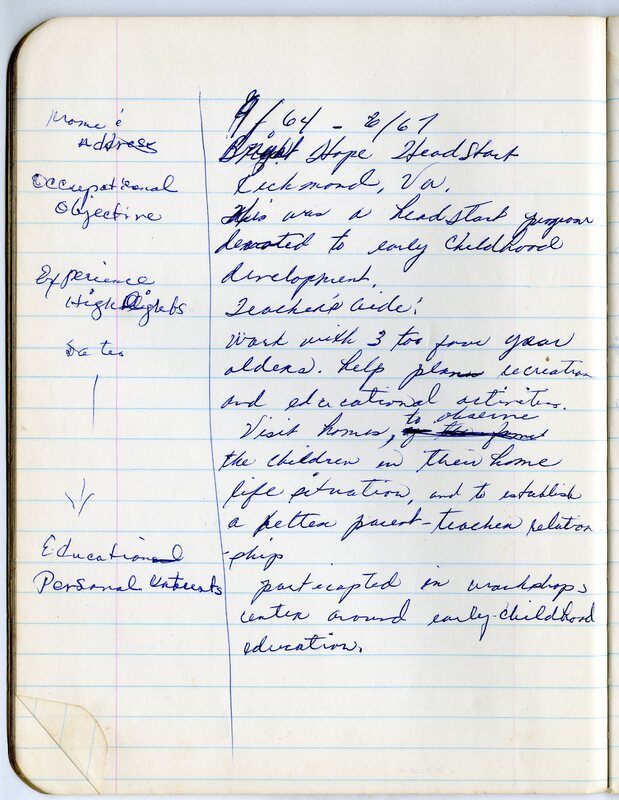 Name &
Address
Occupational
Objective
Experience
Highlights
Dates
Educational
Personal Interests
9/64 - 2/67
Bright Hope HeadStart
Richmond, Va.
This was a headstart program
devoted to early childhood
development.
Teacher's aide:
Work with 3 too four year
olders. help plan recreation
and educational activities.
Visit homes, to observe
the children in their home
life situation, and to establish
a better parent-teacher relation
-ship
particapted in workshops
center around early-childhood
education.